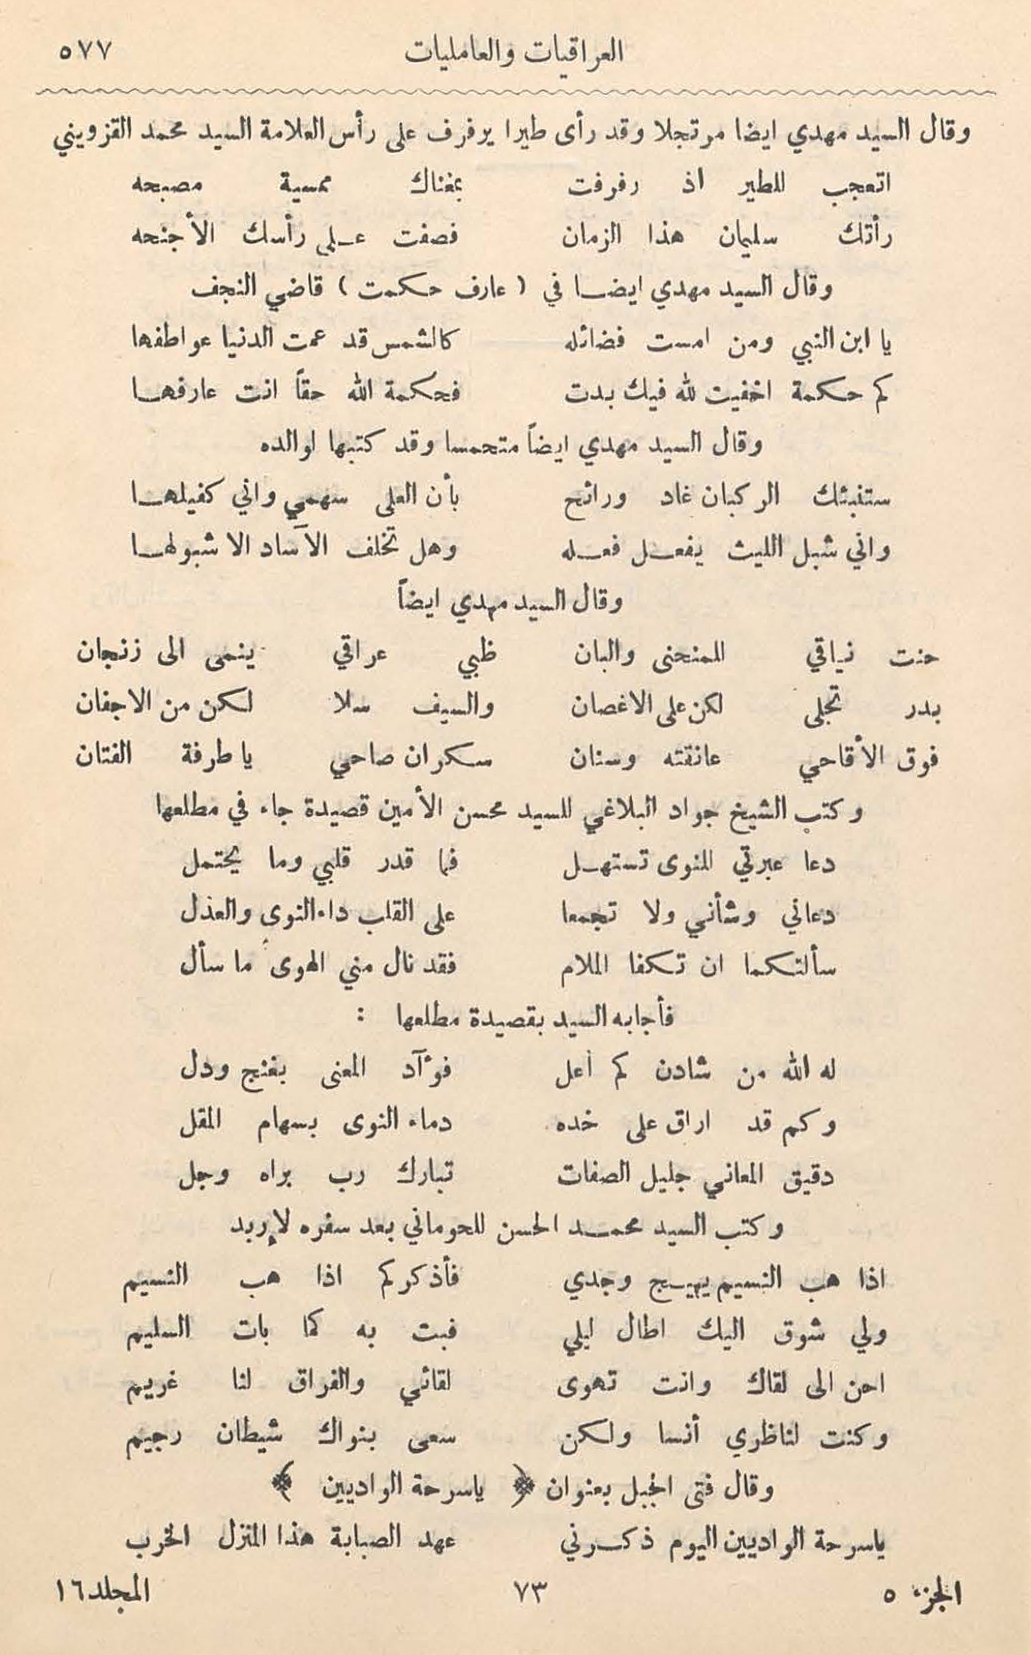 العراقيات والعامليات ٥٧٧
وقال السيد مهدي ايضا مرتجلا وقد رأى طيرا يرفرف على رأس العلامة السيد محمد القزويني
اتعجب للطير اذ رفرفت بمغناك ممسية مصبحه
رأتك سليمان هذا الزمان فصفت على رأسك الأجنحه
وقال السيد مهدي ايضا في ( عارف حكمت ) قاضي النجف
يا ابن النبي ومن امست فضائله كالشمس قد عمت الدنيا عواطفها
كم حكمة اخفيت لله فيك بدت فحكمة الله حقاً انت عارفها
وقال السيد مهدي ايضاً متحمسا وقد كتبها لوالده
ستنبئك الركبان غاد ورائح بأن العلى سهمي واني كفيلها
واني شبل الليث يفعل فعله وهل تخلف الآساد الا شبولها
وقال السيد مهدي ايضاً
حنت نياقي للمنحنى والبان ظبي عراقي ينمى الى زنجان
بدر تجلى لكن على الاغصان والسيف سلا لكن من الاجفان
فوق الأقاحي عانقته وسنان سكران صاحي يا طرفة الفتان
وكتب الشيخ جواد البلاغي للسيد محسن الأمين قصيدة جاء في مطلعها
دعا عبرتي للنوى تستهل فما قدر قلبي وما يحتمل
دعاني وشأني ولا تجمعا على القلب داء النوى والعذل
سألتكما ان تكفا الملام فقد نال مني الهوى ما سأل
فأجابه السيد بقصيدة مطلعها :
له الله من شادن كم اعل فوآد المعنى بغنج ودل
وكم قد اراق على خده دماء النوى بسهام المقل
دقيق المعاني جليل الصفات تبارك رب براه وجل
وكتب السيد محمد الحسن للحوماني بعد سفره لإربد
اذا هب النسيم يهيج وجدي فأذكركم اذا هب النسيم
ولي شوق اليك اطال ليلي فبت به كما بات السليم
احن الى لقاك وانت تهوى لقائي والفراق لنا غريم
وكنت لناظري أنسا ولكن سعى بنواك شيطان رجيم
وقال فتى الجبل بعنوان ﴿ ياسرحة الواديين ﴾
ياسرحة الواديين اليوم ذكرني عهد الصبابة هذا المنزل الخرب
الجزء ٥ ٧٣ المجلد ١٦